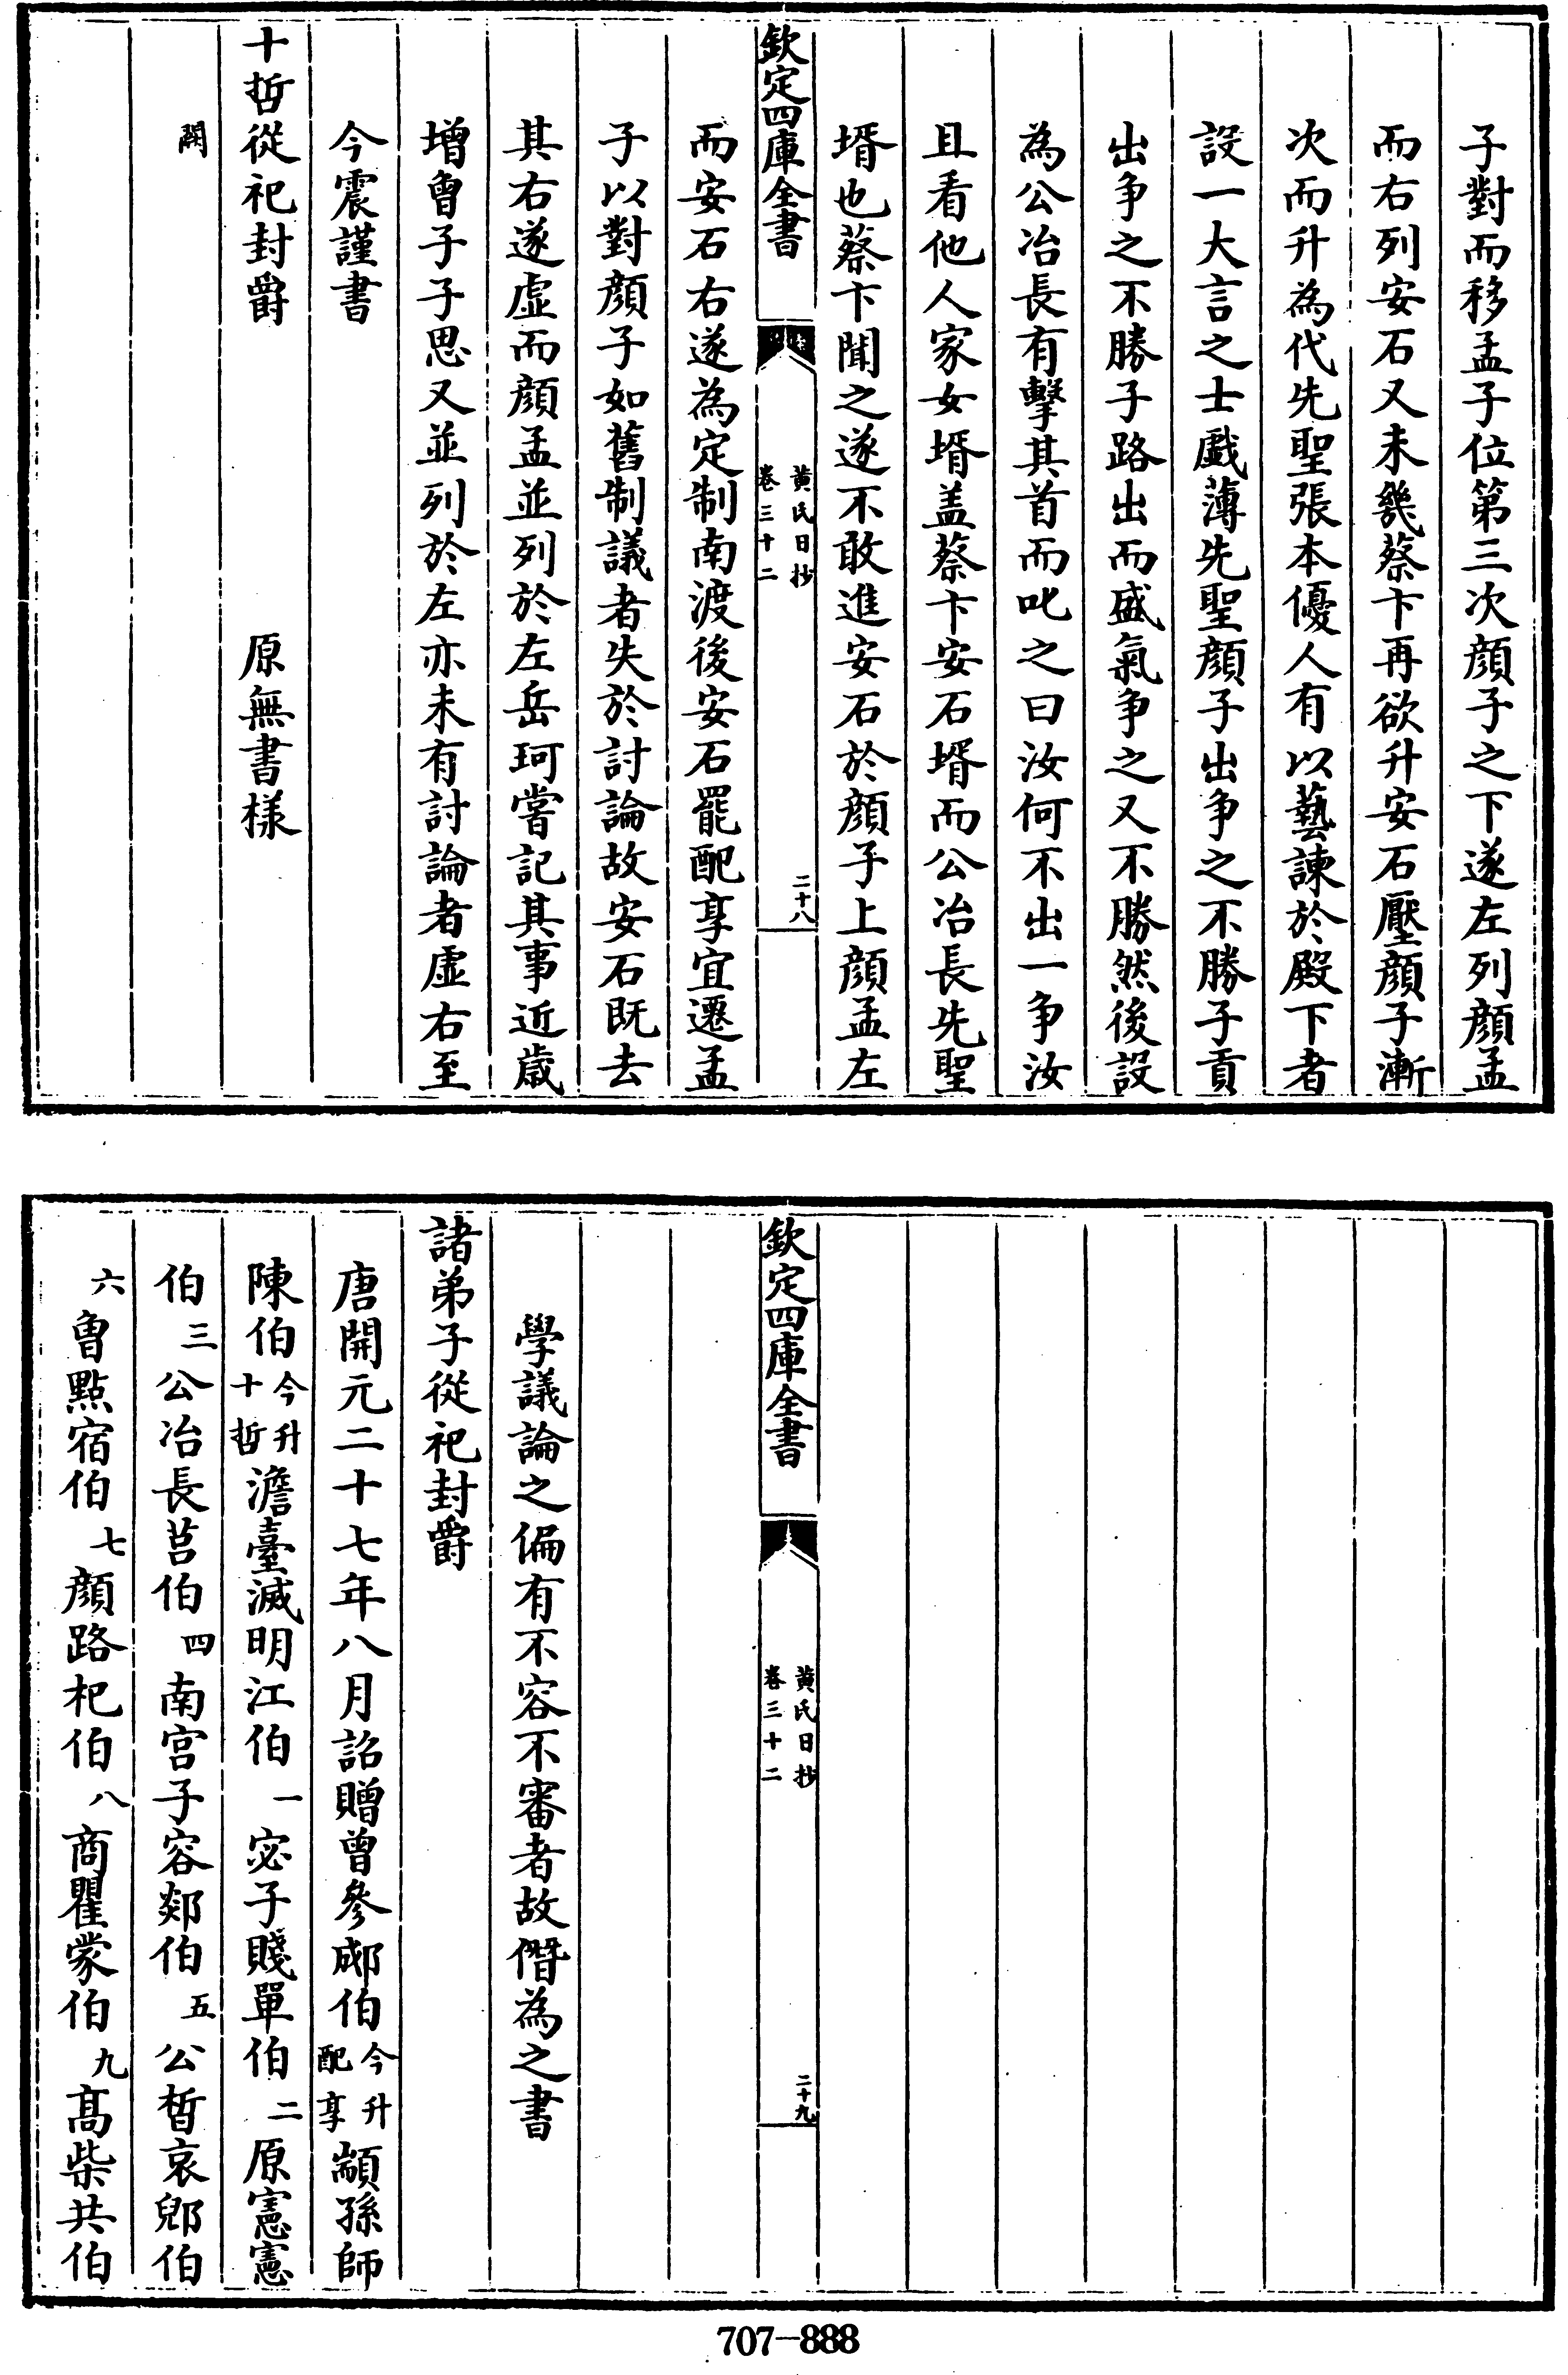 子對而移孟子位第三次顔子之下遂左列顔孟
而右列安石又未幾蔡卞再欲升安石壓顔子漸
次而升為代先聖張本優人有以藝諫於殿下者
設一大言之士戲薄先聖顔子出争之不勝子貢
出争之不勝子路出而盛氣争之又不勝然後設
為公冶長有擊其首而叱之曰汝何不出一争汝
且看他人家女壻盖蔡卞安石壻而公冶長先聖
壻也蔡卞聞之遂不敢進安石於顔子上顔孟左
欽定四庫全書
黄氏日抄
卷三十二
二十八
而安石右遂為定制南渡後安石罷配享宜遷孟
子以對顔子如舊制議者失於討論故安石既去
其右遂虚而顔孟並列於左岳珂嘗記其事近歳
增曾子子思又並列於左亦未有討論者虚右至
今震謹書
十哲從祀封爵 原無書樣
闕
欽定四庫全書
黄氏日抄
卷三十二
二十九
學議論之偏有不容不審者故僭為之書
諸弟子從祀封爵
唐開元二十七年八月詔贈曾參郕伯今升配享顓孫師
陳伯今升十哲澹臺滅明江伯一宓子賤單伯二原憲憲
伯三公冶長莒伯四南宫子容郯伯五公晳哀郳伯
六曾點宿伯七顔路杞伯八商瞿蒙伯九髙柴共伯
707-888